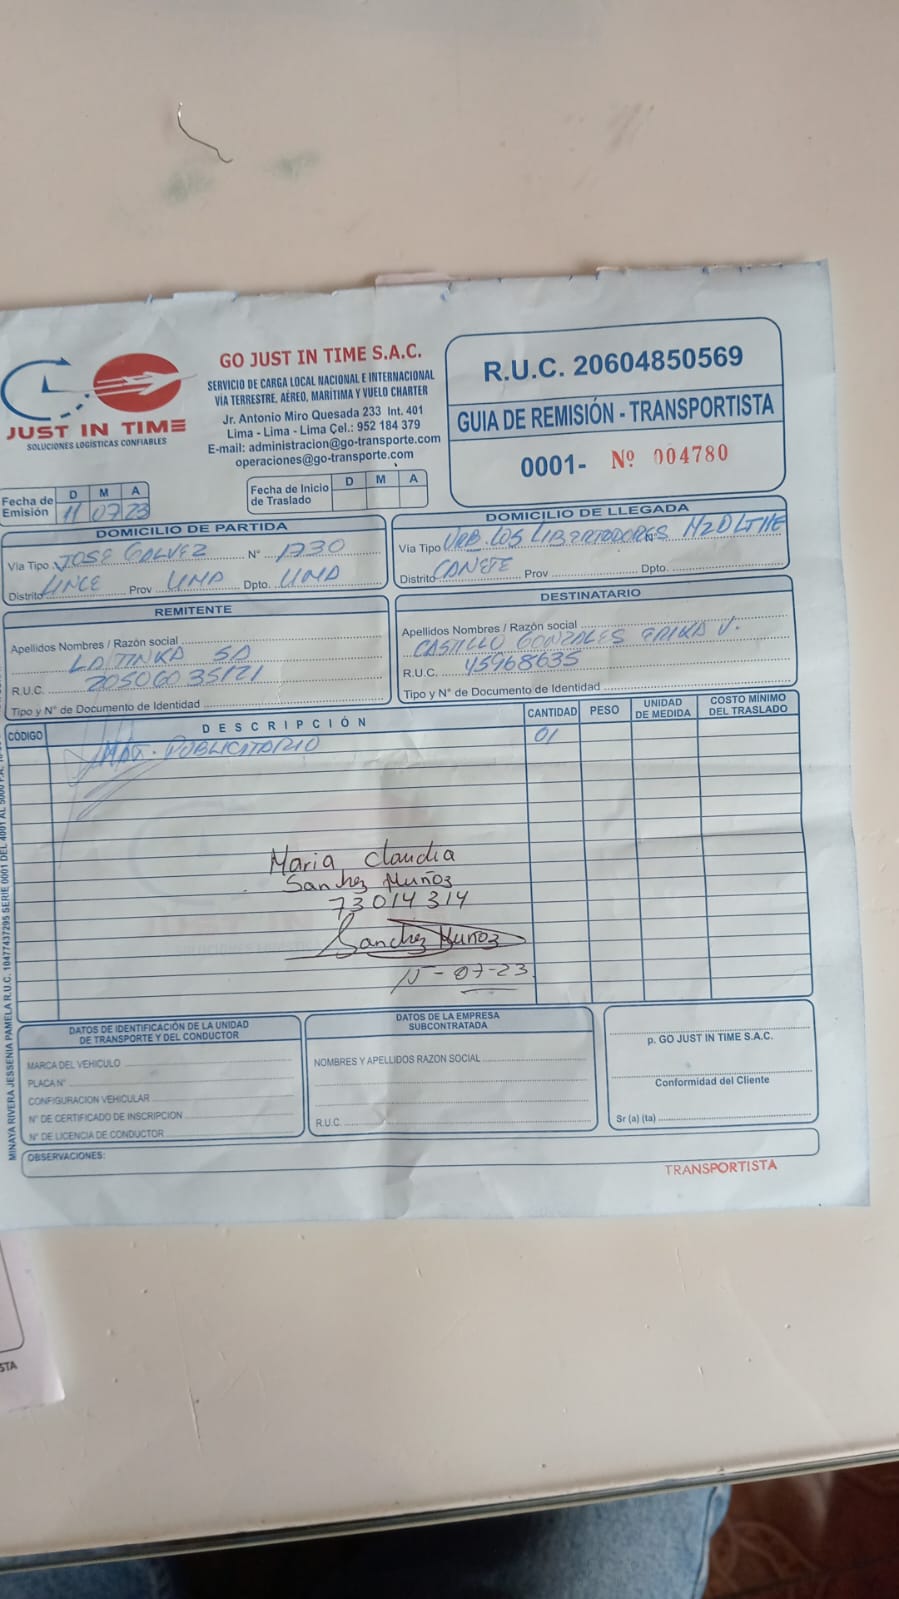 JUST IN TIME
SOLUCIONES LOGÍSTICAS CONFIABLES
GO JUST IN TIME S.A.C.
SERVICIO DE CARGA LOCAL NACIONAL E INTERNACIONAL
VÍA TERRESTRE, AÉREO, MARÍTIMA Y VUELO CHARTER
Jr. Antonio Miro Quesada 233 Int. 401
Lima - Lima - Lima Cel.: 952 184 379
E-mail: administracion@go-transporte.com
operaciones@go-transporte.com
R.U.C. 20604850569
GUIA DE REMISIÓN - TRANSPORTISTA
0001- Nº 004780
Fecha de Emisión D M A
11 07 23
Fecha de Inicio de Traslado D M A
DOMICILIO DE PARTIDA
Vía Tipo JOSE GALVEZ N° 1730
Distrito LINCE Prov LIMA Dpto. LIMA
DOMICILIO DE LLEGADA
Vía Tipo URB. LOS LIBERTADORES N°
Distrito CAÑETE Prov Dpto.
REMITENTE
Apellidos Nombres / Razón social
LA TINKA SA
R.U.C. 20506035121
Tipo y N° de Documento de Identidad
DESTINATARIO
Apellidos Nombres / Razón social
CASTILLO GONZALES ERIKA V.
R.U.C. 45968635
Tipo y N° de Documento de Identidad
CÓDIGO DESCRIPCIÓN CANTIDAD PESO UNIDAD DE MEDIDA COSTO MÍNIMO DEL TRASLADO
MAT. PUBLICITARIO 01
Maria Claudia
Sanchez Muñoz
73014314
Sanchez Muñoz
15-07-23
DATOS DE IDENTIFICACIÓN DE LA UNIDAD
DE TRANSPORTE Y DEL CONDUCTOR
MARCA DEL VEHICULO
PLACA N°
CONFIGURACION VEHICULAR
N° DE CERTIFICADO DE INSCRIPCION
N° DE LICENCIA DE CONDUCTOR
DATOS DE LA EMPRESA
SUBCONTRATADA
NOMBRES Y APELLIDOS RAZON SOCIAL
R.U.C.
p. GO JUST IN TIME S.A.C.
Conformidad del Cliente
Sr (a) (ta)
OBSERVACIONES:
TRANSPORTISTA